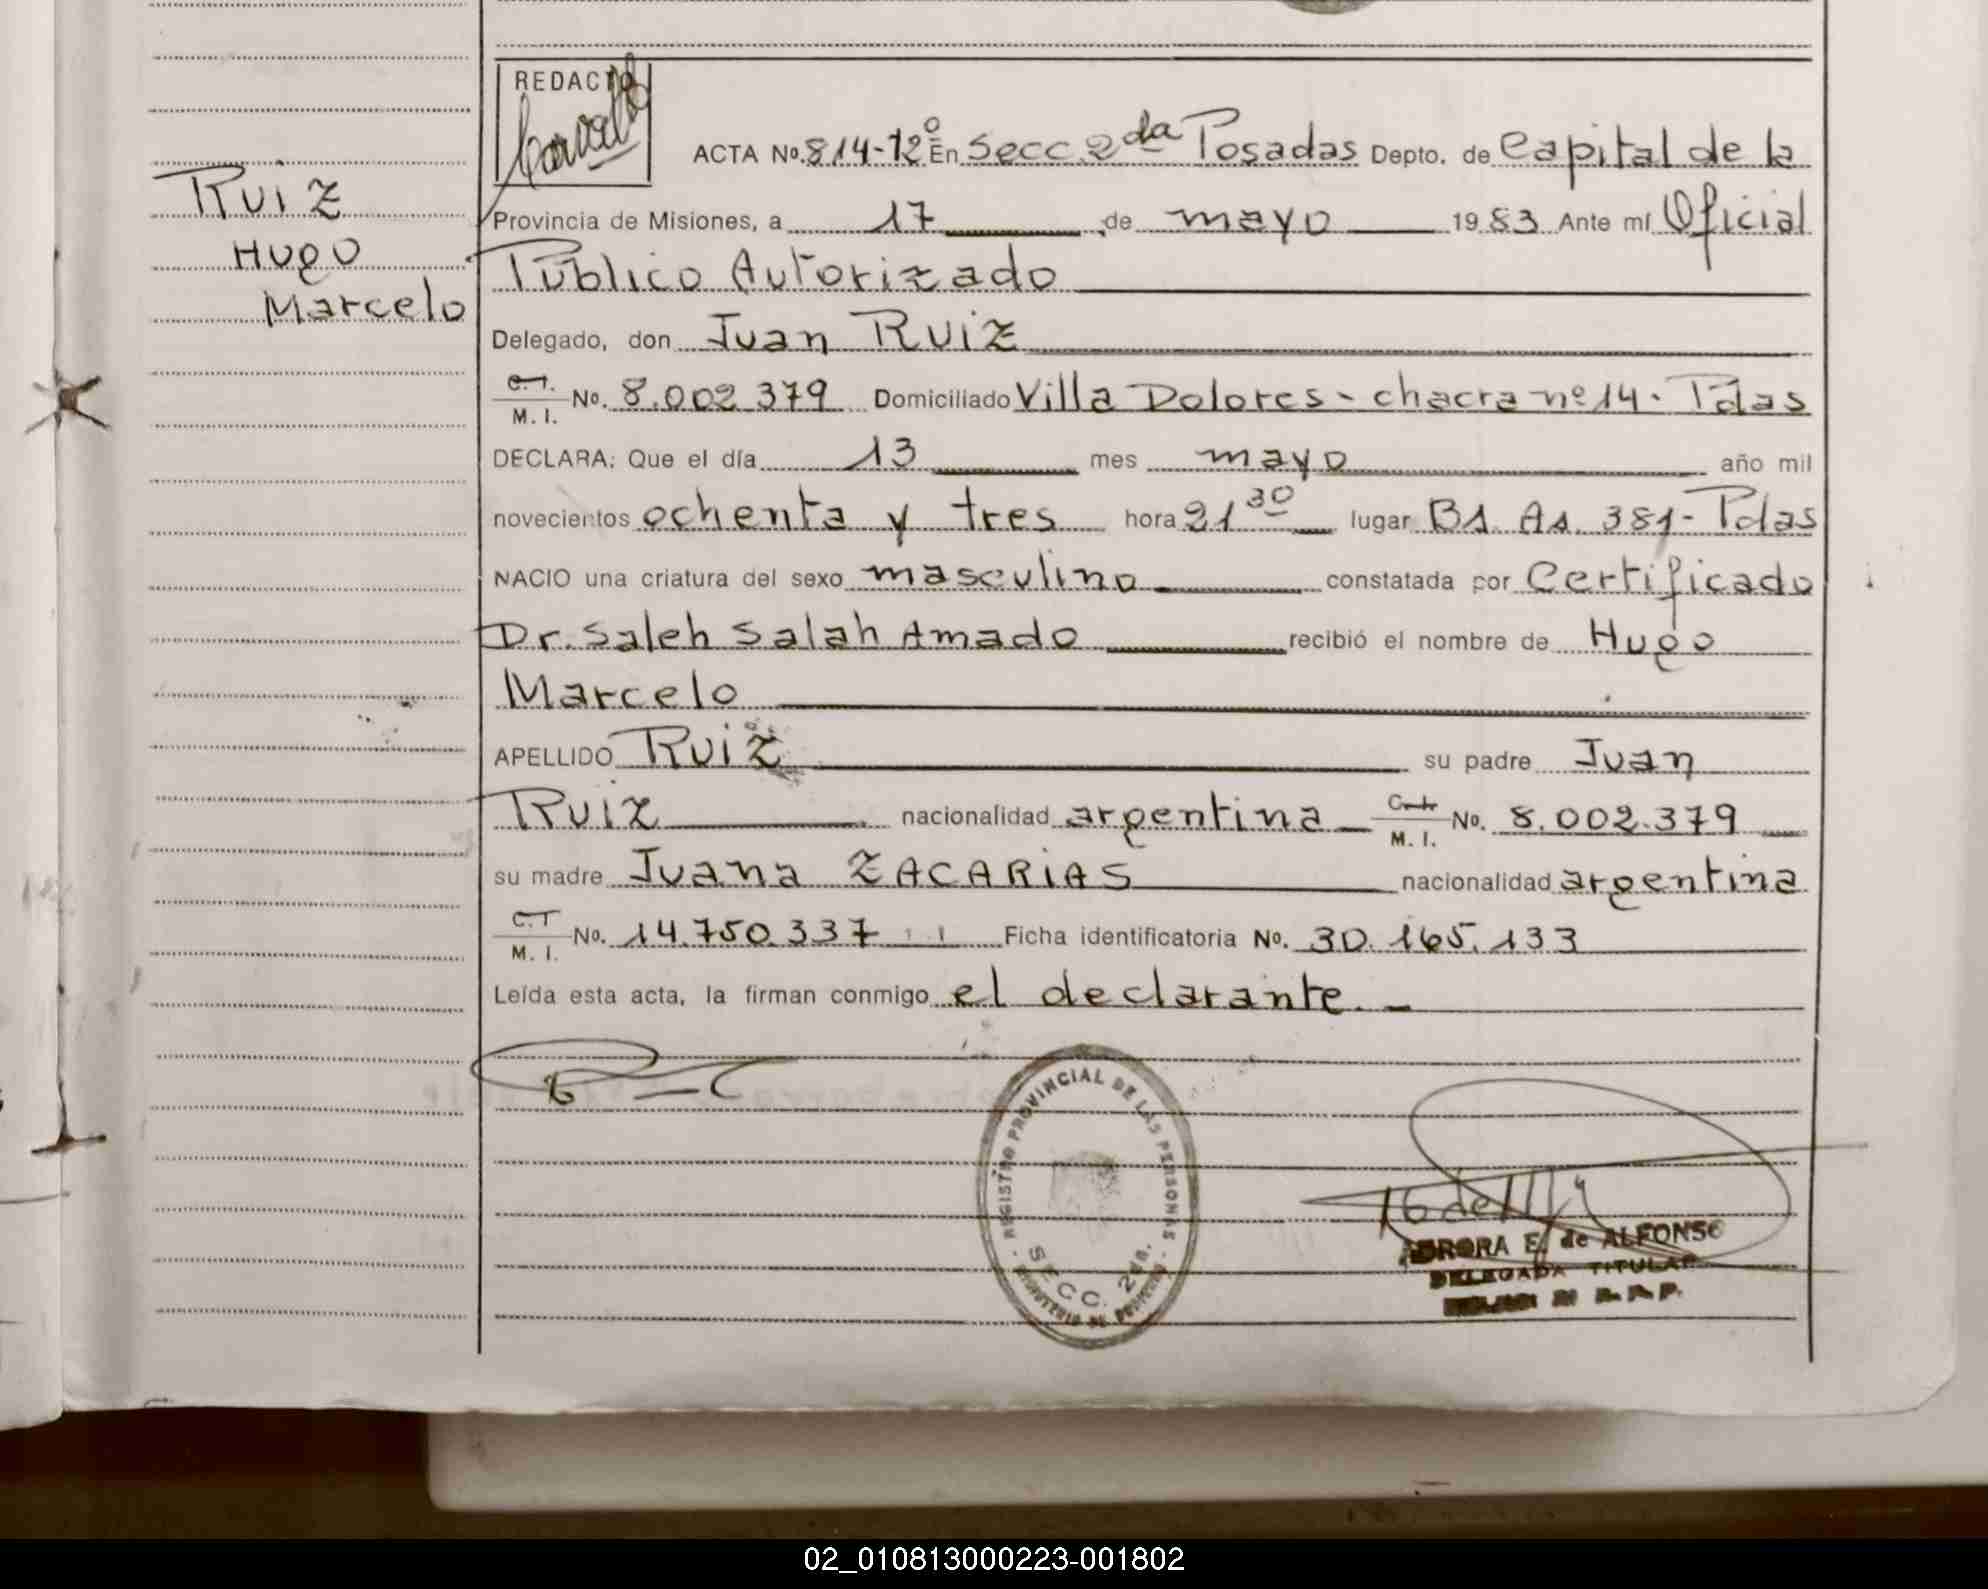 REDACTO
ACTA No. 814-12º En Secc. 2da Posadas Depto. de Capital de la
Ruiz
Hugo
Marcelo
Provincia de Misiones, a 17 de mayo 1983 Ante mí Oficial
Público Autorizado
Delegado, don Juan Ruiz
C.I. M. I. No. 8.002.379 Domiciliado Villa Dolores - chacra nº 14. Pdas
DECLARA: Que el día 13 mes mayo año mil
novecientos ochenta y tres hora 21 30 lugar Bs. As. 381 - Pdas
NACIO una criatura del sexo masculino constatada por Certificado
Dr. Saleh Salah Amado recibió el nombre de Hugo
Marcelo
APELLIDO Ruiz su padre Juan
Ruiz nacionalidad argentina M. I. No. 8.002.379
su madre Juana ZACARIAS nacionalidad argentina
C.I. M. I. No. 14.750.337 Ficha identificatoria No. 30.165.133
Leída esta acta, la firman conmigo el declarante. -
REGISTRO PROVINCIAL DE LAS PERSONAS
SECC. 2da.
MINISTERIO DE GOBIERNO
E. de ALFONSO
DELEGADA TITULAR
02_010813000223-001802